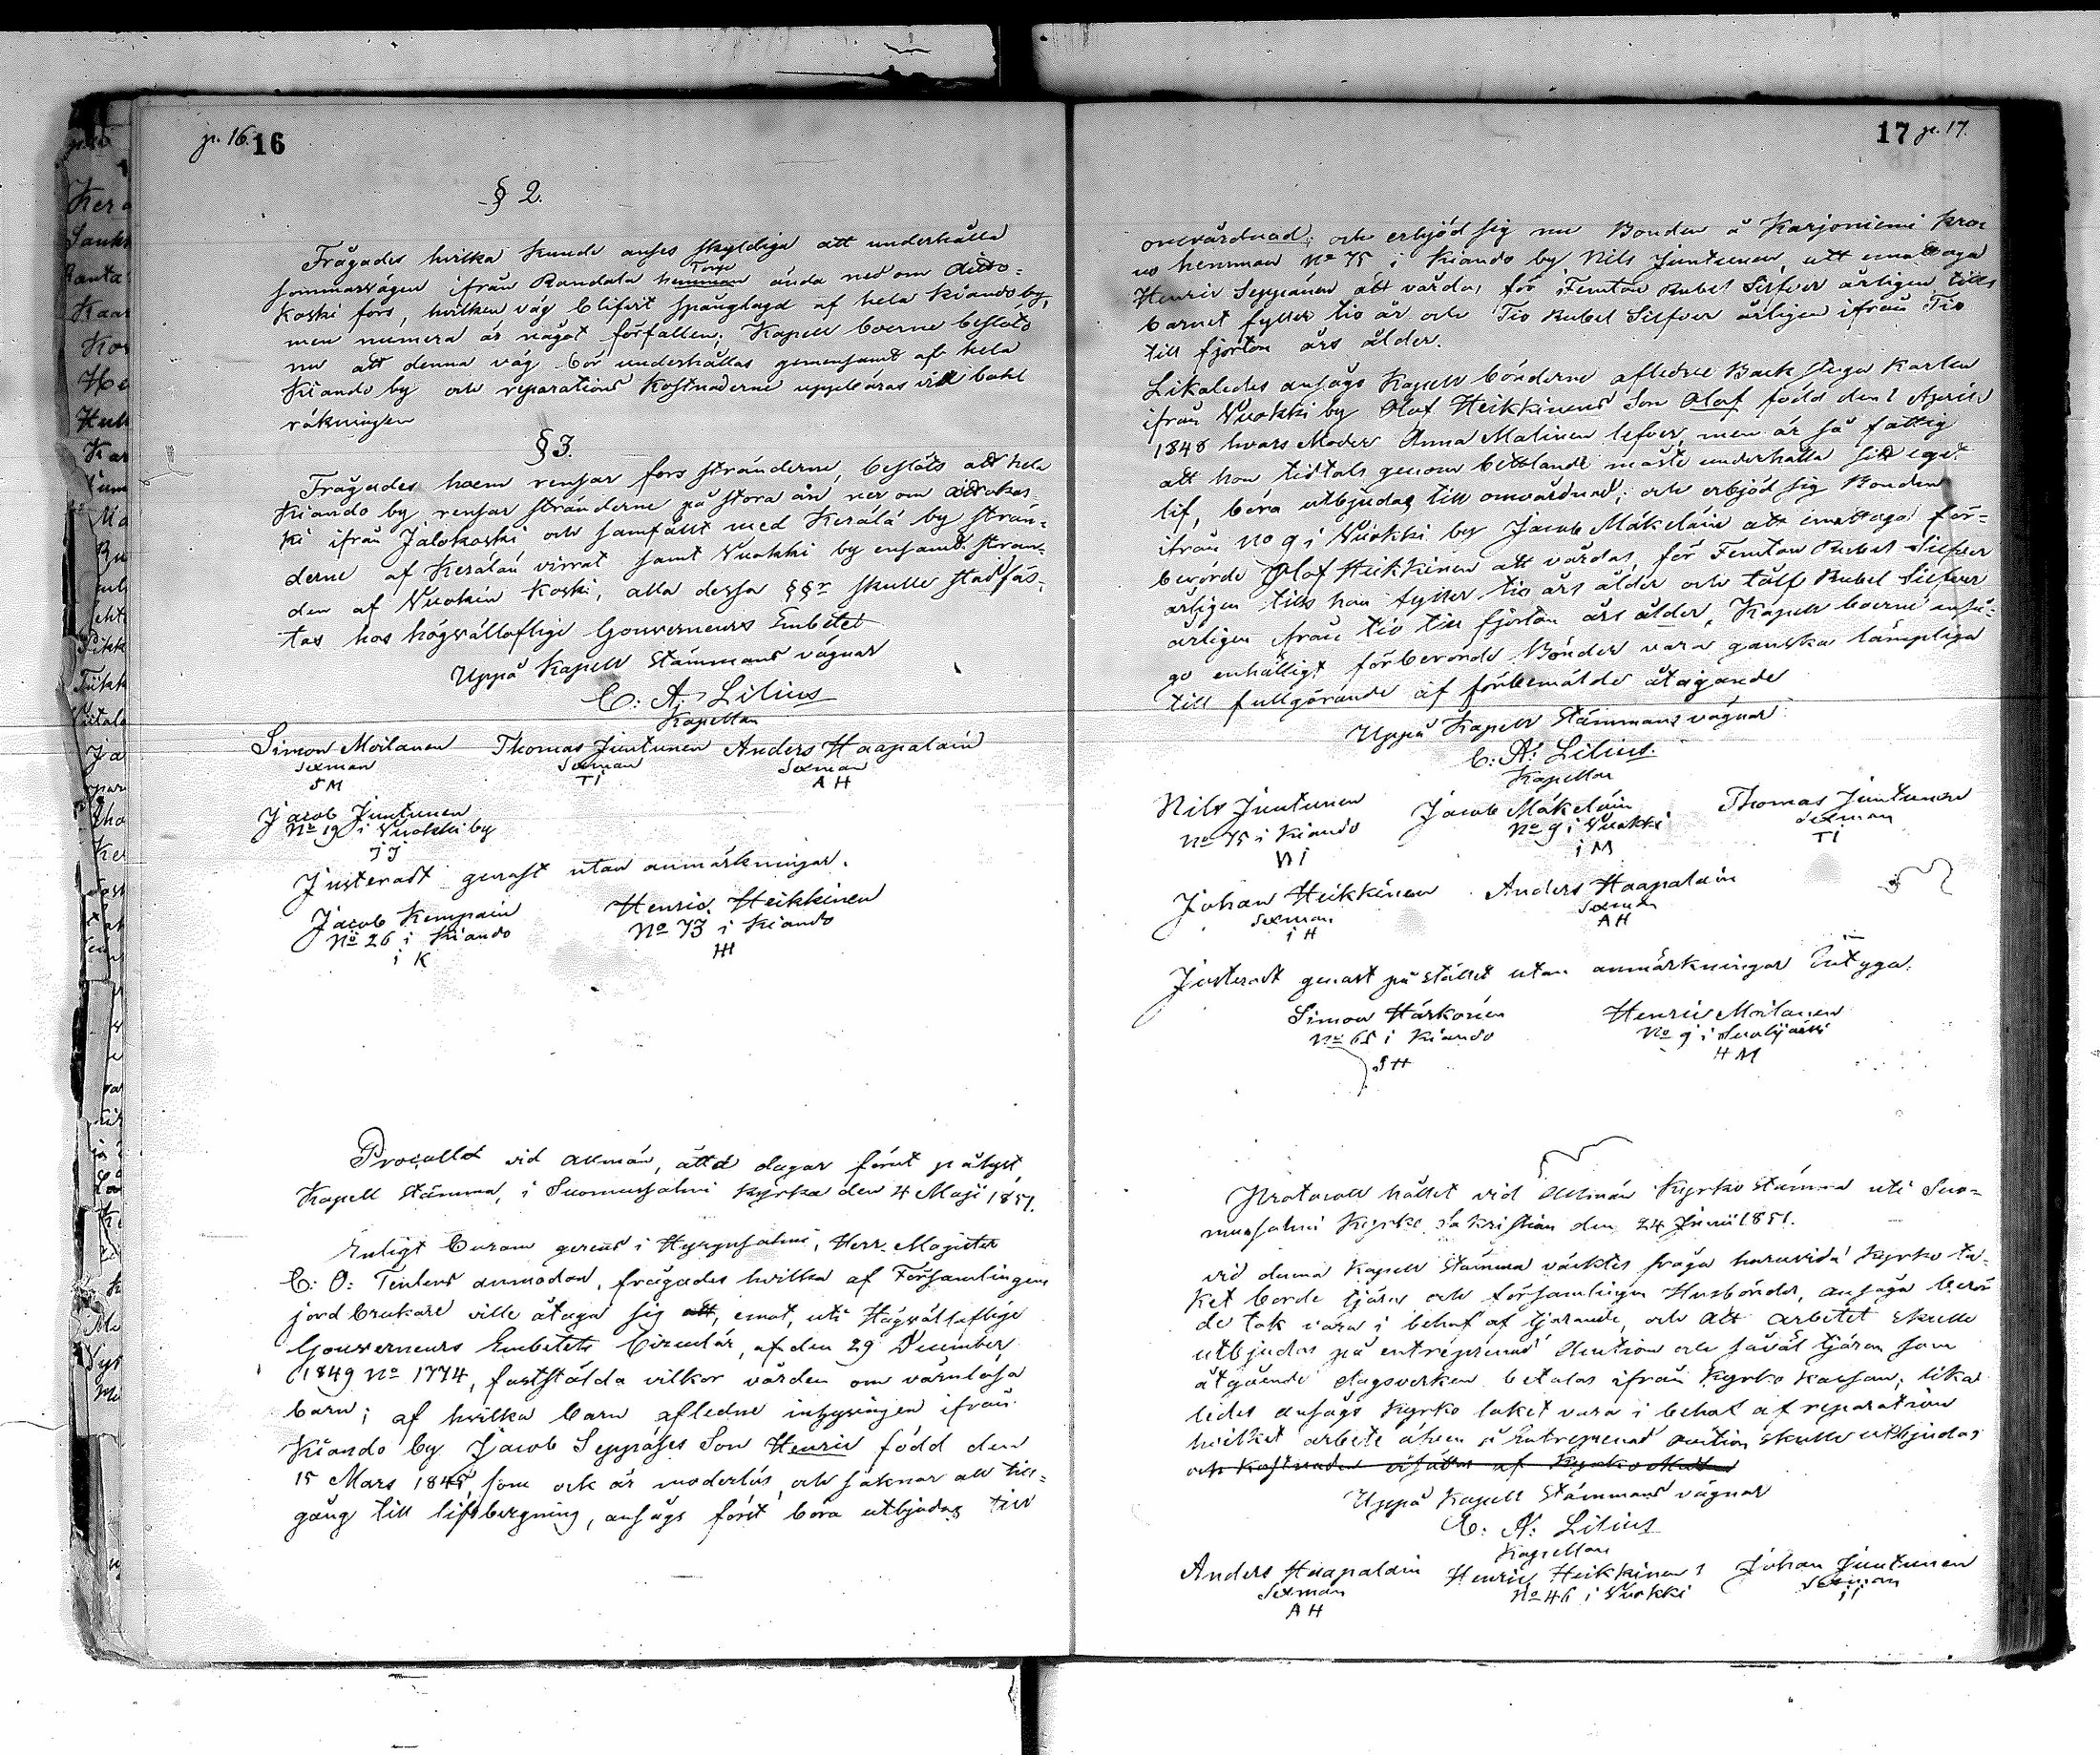 p. 16. 16
§ 2.
Frågades hvilka kunde anses skyldiga att underhålla
Torp
sommarvägen ifrån Randala hemman ända ned om Aitto=
koski fors, hvilken väg blifvit spånglagd af hela Kiando by,
men numera är något förfallen; Kapell boerne beslöts
nu att denna väg bör underhållas gemensamt af hela
Kiando by och reparations kostnaderne uppbäras vid bahl
räkningen
§ 3.
Frågades hvem rensar fors stränderne, beslöts att hela
Kiando by rensar stränderne på stora ån ner om Aittokos
ki ifrån Jalokoski och samfällt med Kerälä by strän=
derne af Kerälän virrat samt Vuokki by ensamt stran=
den af Vuokin koski, alla dessa §§r skulle stadfäs=
tas hos högvälloflige Gouverneurs Embetet
Uppå Kapell Stämmans vägnar
C: A: Lilius
Kapellan
Simon Moilanen Thomas Juntunen Anders Haapalain
Sexman Sexman Sexman
SM TJ AH
Jacob Juntunen
No 19 i Vuokki by
JJ
Justeradt genast utan anmärkningar.
Jacob Kempain Henric Heikkinen
No 26 i Kiando No 73 i Kiando
i K HH
Procalld vid allmän, åtta dagar förut pålyst
Kapell Stämma, i Suomusjalmi kyrka den 4 Maji 1851.
Enligt Curam gerens i Hyrynsalmi, Herr Magister
C: O: anmodan, frågades hvilka af Församlingens
jord brukare ville åtaga sig att, emot, uti Högvälloflige
Gouverneurs Embetets Circulär, af den 29 December
1849 No 1774, faststälda vilkor vården om värnlösa
barn; af hvilka barn afledne inhysingen ifrån
Kiando by Jacob Seppäses Son Henric född den
15 Mars 1845, som ock är moderlös, och saknar all till=
gång till lifsbergning, ansågs först böra utbjudas till
17 p. 17.
omvårdnad; och erbjöd sig nu Bonden å Karjoniemi Kro
no hemman No 75 i Kiando by Nils Juntunen, att emottaga
Henric Seppänen att vårdas för Femton Rubel Silfver årligen tills
barnet fyller tio år och Tio Rubel Silfver årligen ifrån Tio
till fjorton års ålder.
Likaledes ansågs Kapell bönderne afledne Back stuga Karlen
ifrån Vuokki by Olof Heikkinens Son Olof född den 1 April
1848 hvars Moder Anna Malinen lefver, men är så fattig
att hon tidtals genom bettlande måste underhålla sitt eget
lif, böra utbjudas till omvårdnad; och erbjöd sig Bonden
ifrån No 9 i Vuokki by Jacob Mäkeläin att emottaga för=
berörde Olof Heikkinen att vårdas, för Femton Rubel Silfver
årligen tills han fyller tio års ålder och tolf Rubel Silfver
årligen ifrån tio till fjorton års ålder, Kapell boerne anså=
go enhälligt förberörde Bönder vara ganska lämpliga
till fullgörande af förbemälde åtagande
Uppå Kapell Stämmans vägnar
C: A: Lilius.
Kapellan
Nils Juntunen Jacob Mäkeläin Thomas Juntunen
No 75 i Kiando No 9 i Vuokki Sexman
NJ i M TJ
Johan Heikkinen Anders Haapalain
Sexman Sexman
i H AH
Justeradt genast på stället utan anmärkningar Intyga.
Simon Härkönen Henric Moilanen
No 65 i Kiando No 9 i
SH HM
Protocoll hållet vid Allmän Kyrko stämma uti Suo=
musjalmi Kyrko Sakristian den 24 Junii 1851.
vid denna Kapell Stämma väcktes fråga huruvida Kyrko ta=
ket borde tjäras och församlingens Husbönder, ansåga berör
de tak vara i behof af tjärande, och att arbetet skulle
utbjudas på entreprenad Auction och såväl tjäran som
åtgående dagsverken betalas ifrån Kyrko Kassan; lika
ledes ansågs Kyrko taket vara i behof af reparation
hvilket arbete äfven å Entreprenad auction skulle utbjudas
och kostnaden af Kyrko
Uppå Kapell Stämmans vägnar
C: A: Lilius
Kapellan
Anders Haapalain Henric Heikkinen Johan Juntunen
Sexman No 46 i Vuokki Sexman
AH JJ